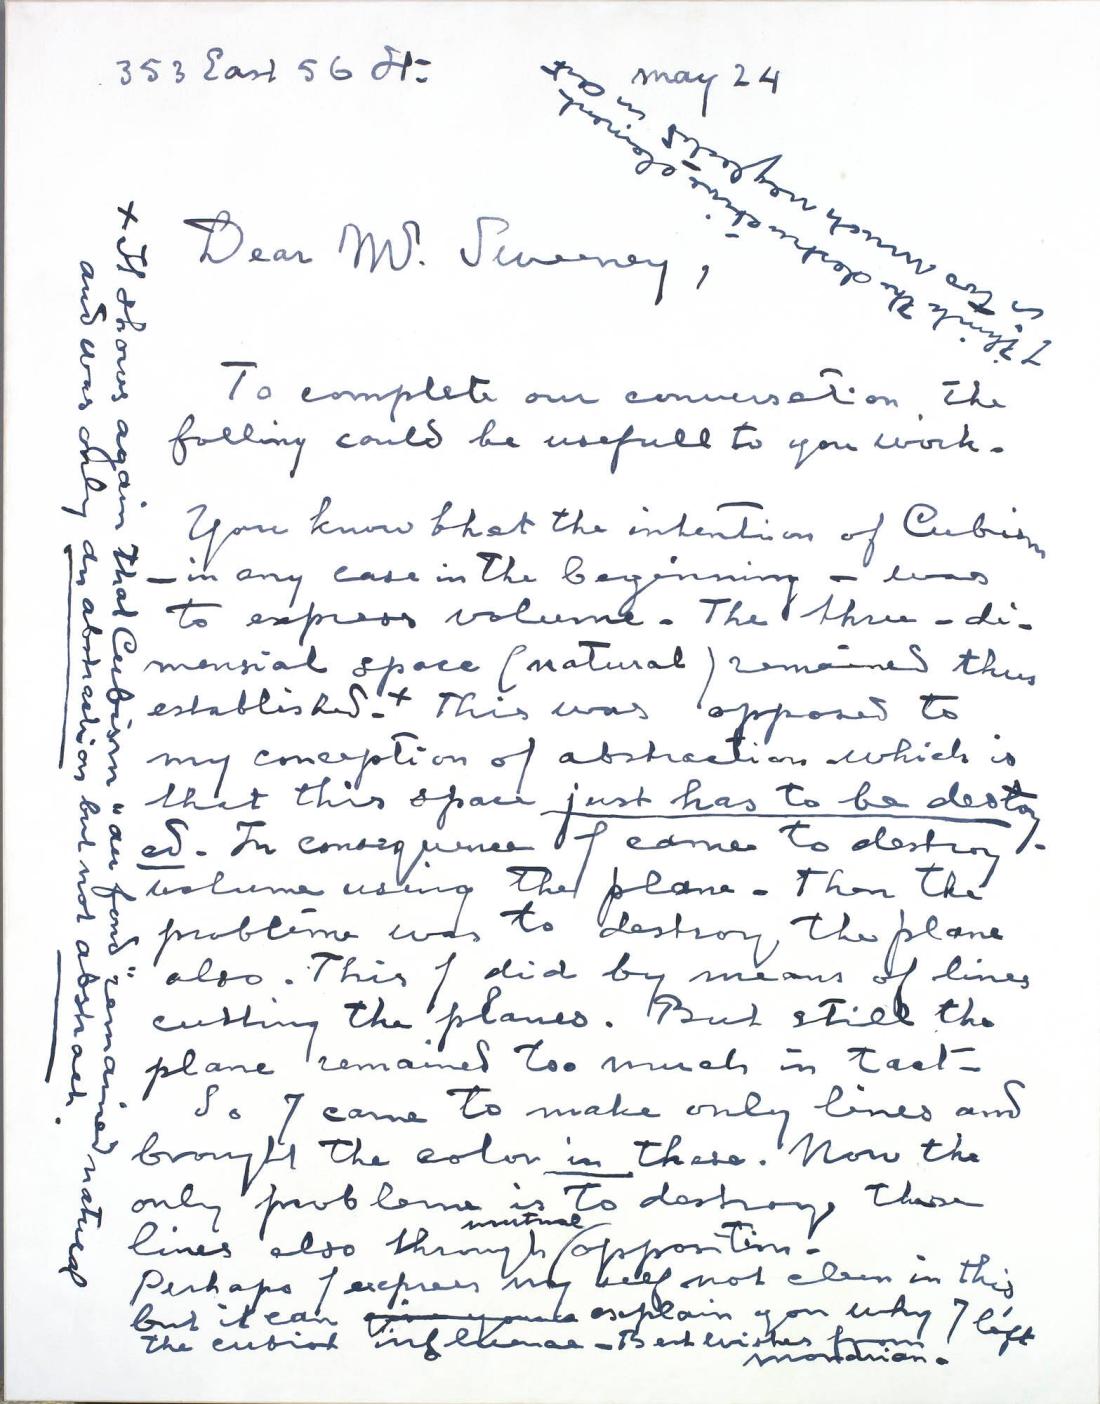 353 East 56 St=
may 24
I think the destructive element
is too much neglected in art
Dear Mr. Sweeney,
To complete our conversation, the
folling could be usefull to you work.
You know that the intention of Cubism
– in any case in the beginning – was
to express volume. The three-di-
mensial space (natural) remained thus
established.+ This was opposed to
my conception of abstraction which is
that this space just has to be destoy-
ed. In consequence I came to destroy
volume using the plane. Then the
problème was to destroy the plane
also. This I did by means of lines
cutting the planes. But still the
plane remained too much in tact–
So I came to make only lines and
brought the color in these. Now the
only problème is to destroy these
lines also through mutual opposition.
Perhaps I express my self not clear in this
but it can explain you why I left
the cubist influence – Best wishes from
Mondrian.
+ It shows again that Cubism "au fond" remained natural
and was only an abstraction but not abstract.